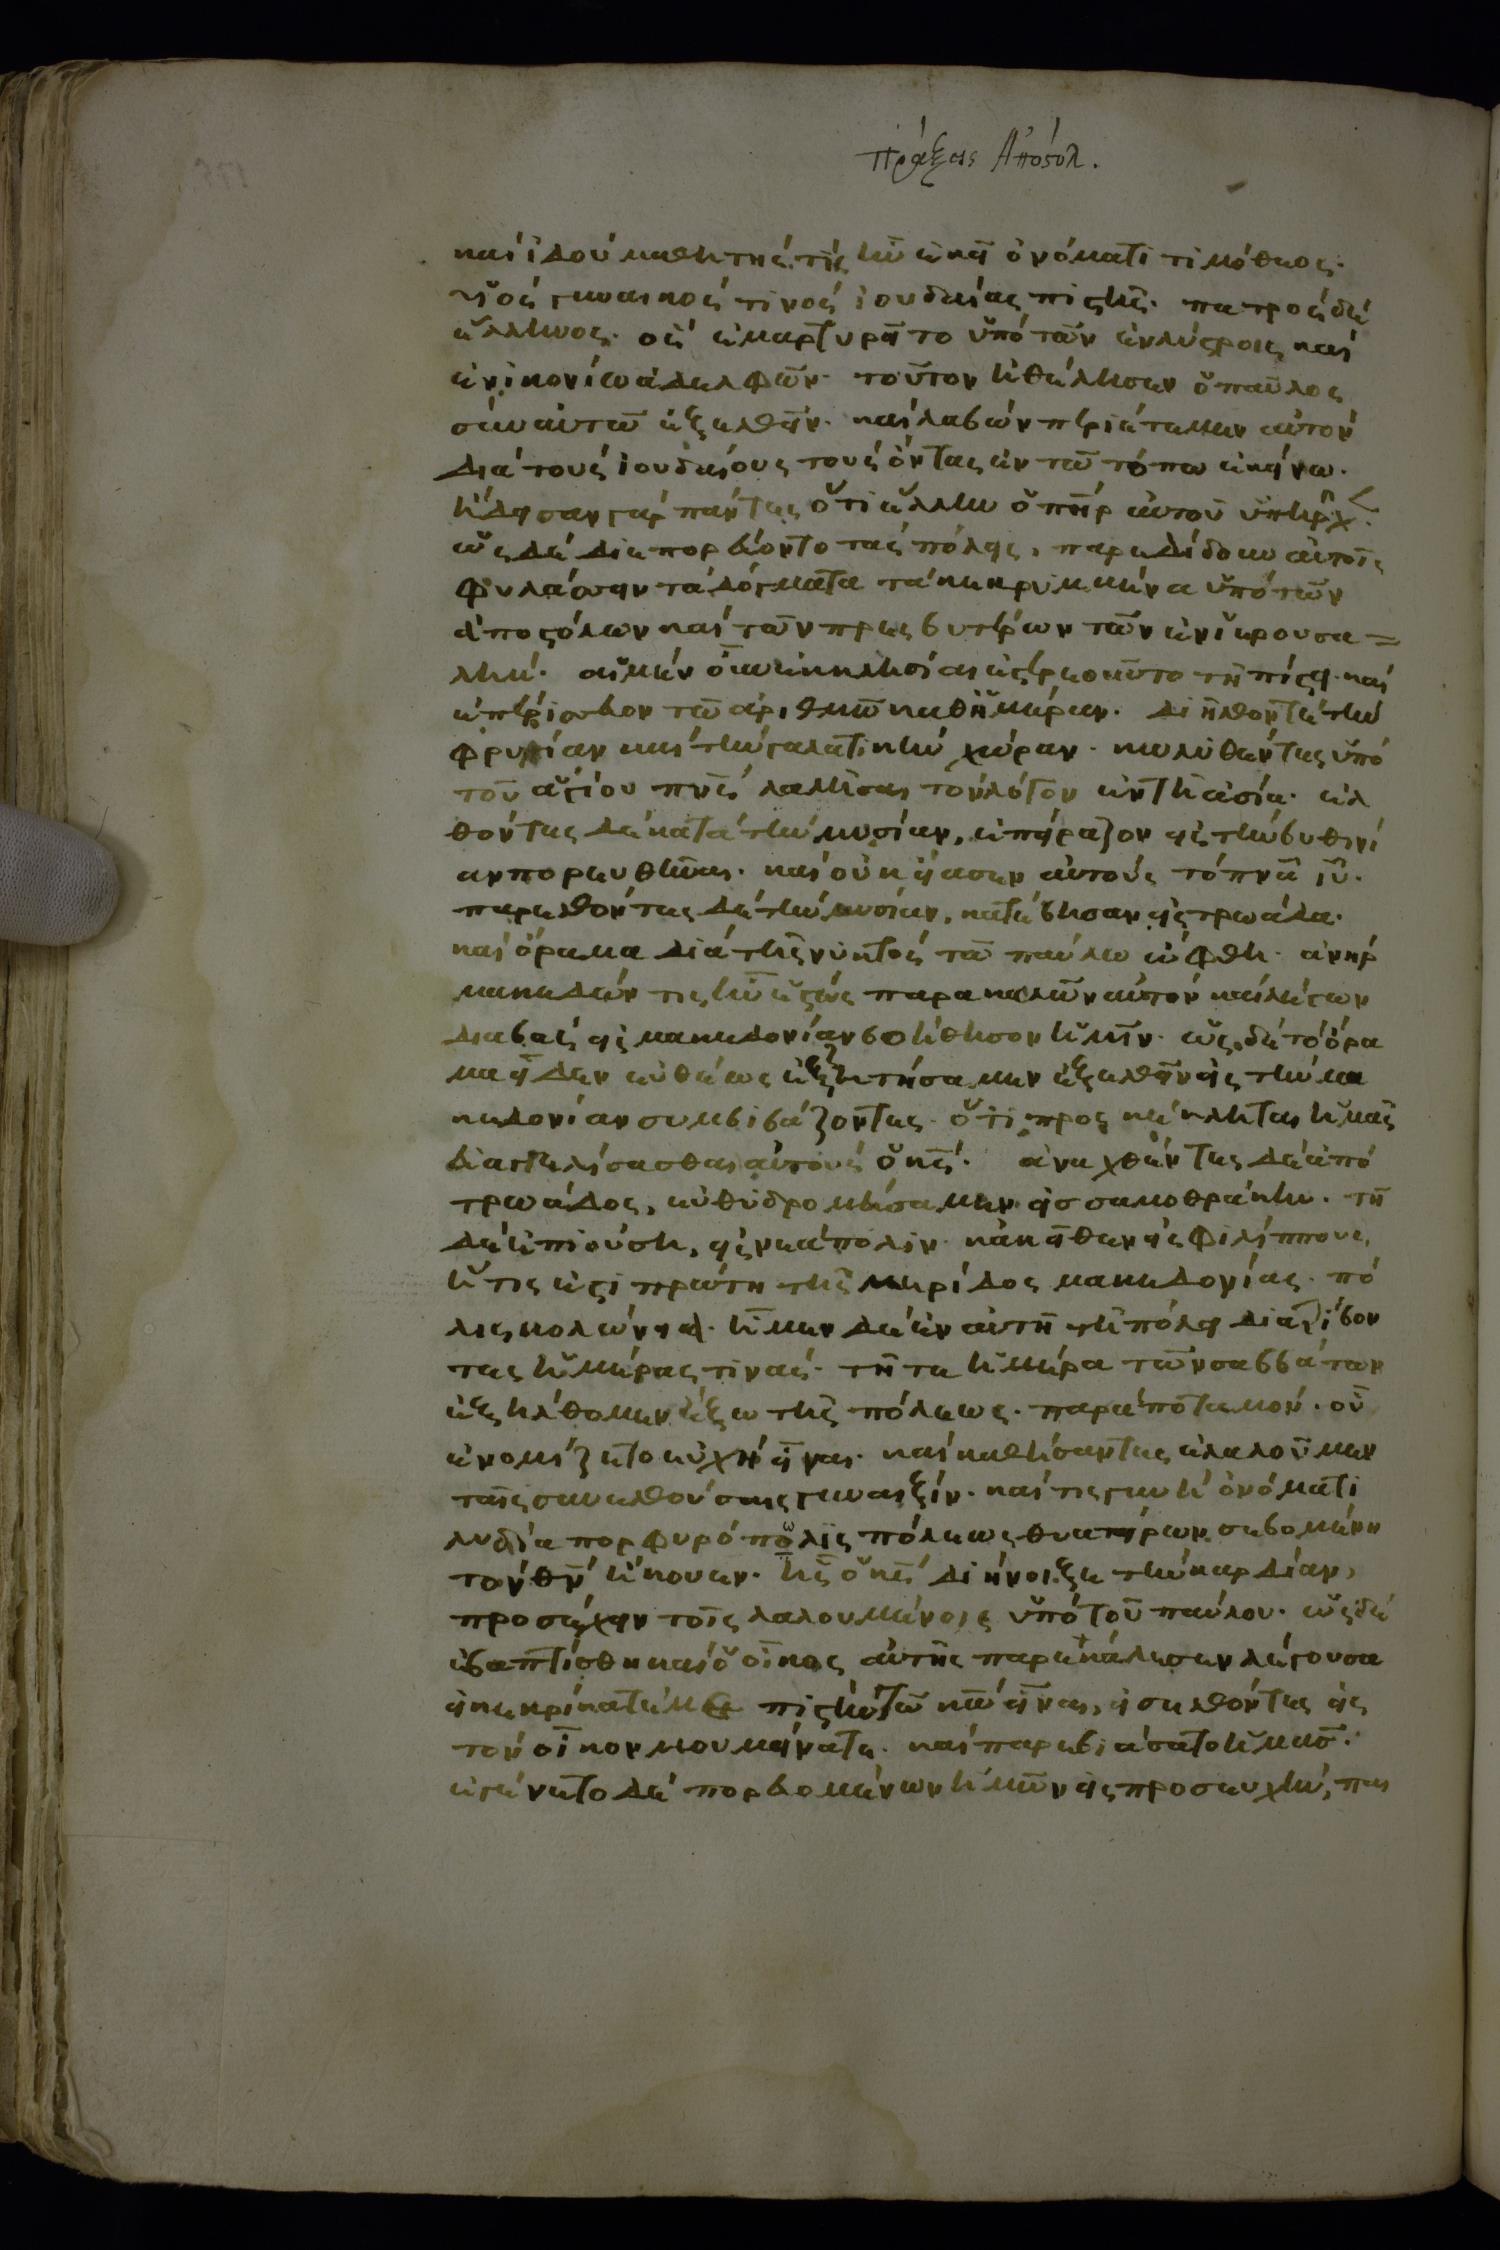 Πράξεις Ἀποστολ.
καὶ ἰδοὺ μαθητής τις ἦν ἐκεῖ ὀνόματι τιμόθεος·
υἱὸς γυναικός τινος ἰουδαίας πιστῆς· πατρὸς δὲ
ἕλληνος· ὃς ἐμαρτυρεῖτο ὑπὸ τῶν ἐν λύστροις καὶ
ἐν ἰκονίω ἀδελφῶν· τοῦτον ἠθέλησεν ὁ παῦλος
σὺν αὐτῶ ἐξελθεῖν· καὶ λαβὼν περιέτεμεν αὐτὸν
διὰ τοὺς ἰουδαίους τοὺς ὄντας ἐν τῶ τόπω ἐκείνω·
ἤδεισαν γὰρ πάντες ὅτι ἕλλην ὁ πηρ αὐτοῦ ὑπῆρχ·
ὡς δὲ διεπορεύοντο τὰς πόλεις, παρεδίδουν αὐτοῖς
φυλάσσειν τὰ δόγματα τὰ κεκριμμένα ὑπὸ τῶν
ἀποστόλων καὶ τῶν πρεσβυτέρων τῶν ἐν ἱερουσα=
λήμ· αἱ μὲν οὖν ἐκκλησίαι ἐστερεοῦντο τῆ πίστει· καὶ
ἐπερίσσευον τῶ ἀριθμῶ καθ' ἡμέραν· διῆλθον δὲ τὴν
φρυγίαν καὶ τὴν γαλατικὴν χώραν· κωλυθέντες ὑπὸ
τοῦ ἁγίου πνς λαλῆσαι τὸν λόγον ἐν τῆ ἀσία· ἐλ
θόντες δὲ κατὰ τὴν μυσίαν, ἐπείραζον εἰς τὴν βυθινί
αν πορευθῆναι· καὶ οὐκ εἴασεν αὐτοὺς τὸ πνα ιυ·
παρελθόντες δὲ τὴν μυσίαν, κατέβησαν εἰς τρωάδα·
καὶ ὅραμα διὰ τῆς νυκτὸς τῶ παύλω ὤφθη· ἀνὴρ
μακεδών τις ἦν ἑστὼς παρακαλῶν αὐτὸν καὶ λέγων
διαβὰς εἰς μακεδονίαν βοήθησον ἡμῖν· ὡς δὲ τὸ ὅρα
μα εἶδεν εὐθέως ἐζητήσαμεν ἐξελθεῖν εἰς τὴν μα
κεδονίαν συμβιβάζοντες· ὅτι προσκέκληται ἡμᾶς
εὐαγγελίσασθαι αὐτοὺς ὁ κς· ἀναχθέντες δὲ ἀπὸ
τρωάδος, εὐθυδρομήσαμεν εἰς σαμοθράκην· τῆ
δὲ ἐπιούση, εἰς νεάπολιν· κἀκεῖθεν εἰς φιλίππους,
ἥτις ἐστὶ πρώτη τῆς μερίδος μακεδονίας· πό
λις κολώνεια· ἦμεν δὲ ἐν αὐτῆ τῆ πόλει διατρίβον
τες ἡμέρας τινάς· τῆ τε ἡμέρα τῶν σαββάτων
ἐξήλθομεν ἔξω τῆς πόλεως· παρὰ ποταμόν· οὗ
ἐνομίζετο εὐχὴ εἶναι· καὶ καθίσαντες ἐλαλοῦμεν
ταῖς συνελθούσαις γυναιξίν· καὶ τις γυνὴ ὀνόματι
λυδία πορφυρόπωλις πόλεως θυατήρων σεβομένη
τὸν θν ἤκουεν· ἧς ὁ κς διήνοιξε τὴν καρδίαν,
προσέχειν τοῖς λαλουμένοις ὑπὸ τοῦ παύλου· ὡς δὲ
ἐβαπτίσθη καὶ ὁ οἶκος αὐτῆς παρεκάλεσεν λέγουσα
εἰ κεκρίκατέ με πιστὴν τῶ κω εἶναι, εἰσελθόντες εἰς
τὸν οἶκον μου μείνατε· καὶ παρεβιάσατο ἡμᾶς·
ἐγένετο δὲ πορευομένων ἡμῶν εἰς προσευχὴν, παι